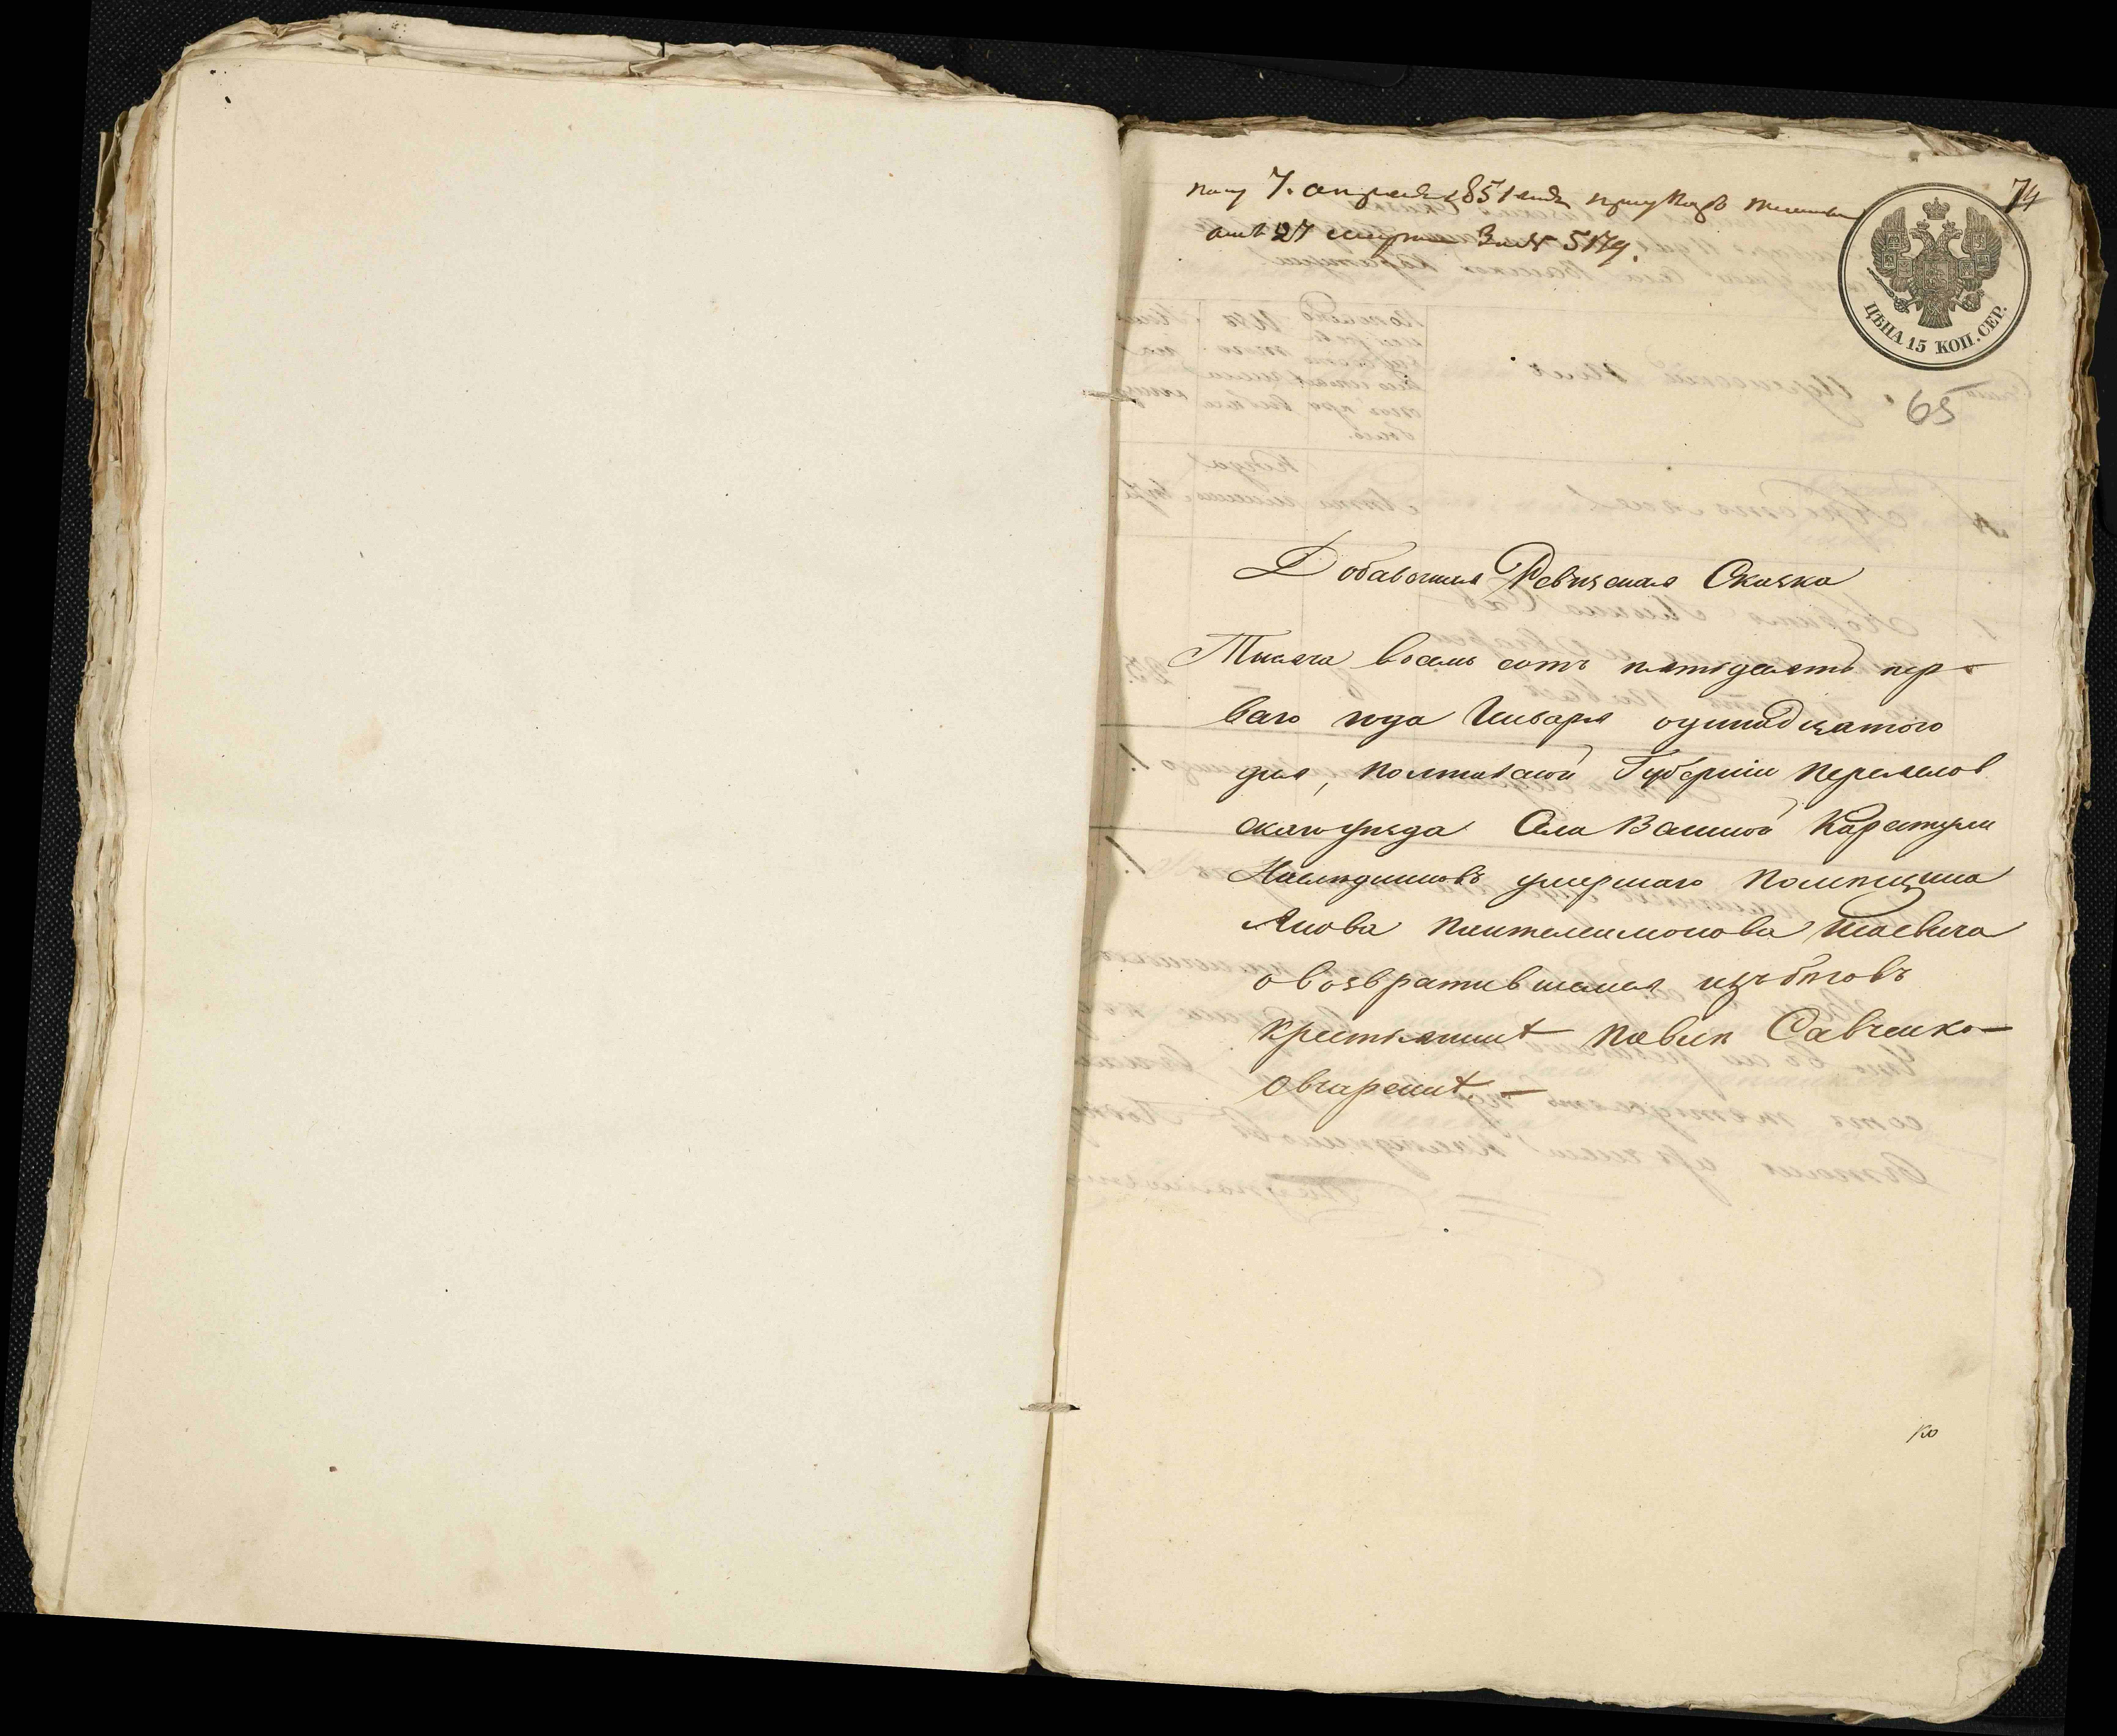 74
7. апреля 1851 года при указе
отъ 27 марта за № 5179.
ЦѢНА 15 КОП. СЕР.
65
Добавочная Ревизская Сказка
Тысяча восемь сотъ пятьдесятъ пер-
ваго года Января одинадцатого
дня, Полтавской Губерніи Переяслов
скаго уезда Села Великой Каратули
Наследниковъ умершаго Помещика
Якова Пантелеимонова
о возвратившемся изъ беговъ
крестьянине Павле Савченко-
Овчаренке. —